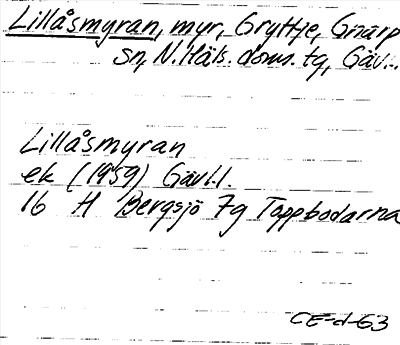 Lillåsmyran, myr, Gryttje, Gnarp
sn, N. Häls. doms. tg, Gävl.
Lillåsmyran
ek (1959) Gävl. l.
16 H Bergsjö 7g Tappbodarna
CE-d-63